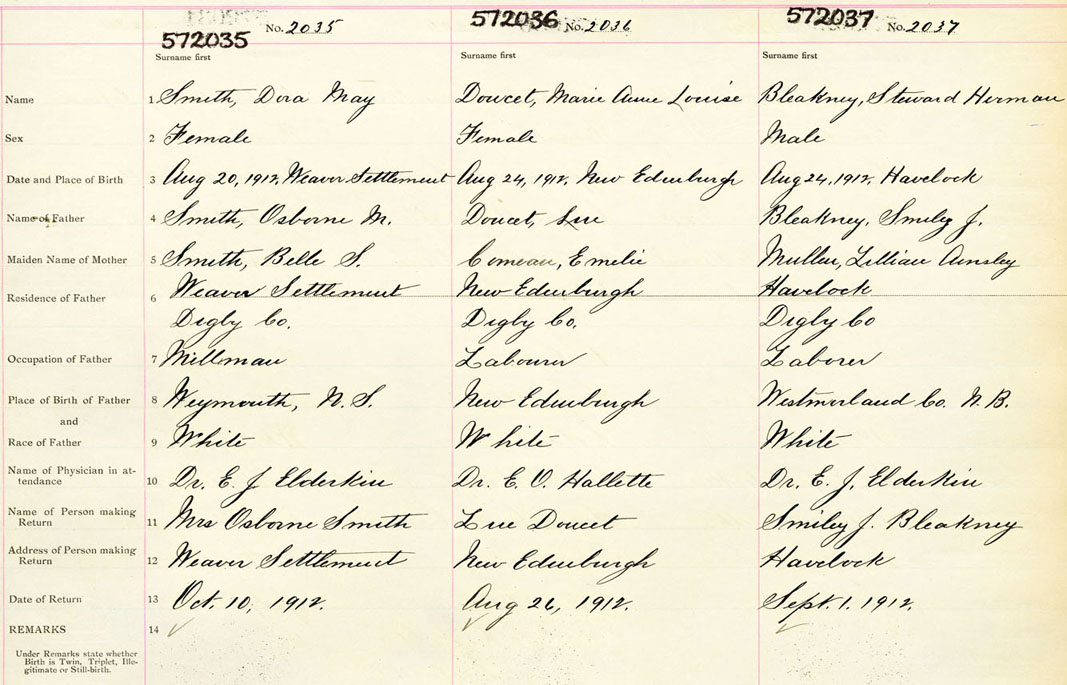 572035 No. 2035 572036 No. 2036 572037 No. 2037
Surname first Surname first Surname first
Name 1 Smith, Dora May Doucet, Marie Anne Louise Bleakney, Steward Herman
Sex 2 Female Female Male
Date and Place of Birth 3 Aug 20, 1912, Weaver Settlement Aug 24, 1912, New Edinburgh Aug 24, 1912, Havelock
Name of Father 4 Smith, Osborne M. Doucet, Luc Bleakney, Smiley J.
Maiden Name of Mother 5 Smith, Belle S. Comeau, Emelie Mullen, Lillian Ainsley
Residence of Father 6 Weaver Settlement New Edinburgh Havelock
Digby Co. Digby Co. Digby Co
Occupation of Father 7 Millman Labourer Laborer
Place of Birth of Father 8 Weymouth, N.S. New Edinburgh Westmorland Co. N.B.
and
Race of Father 9 White White White
Name of Physician in at-
tendance 10 Dr. E. J Elderkin Dr. E. O. Hallette Dr. E. J. Elderkin
Name of Person making
Return 11 Mrs Osborne Smith Luc Doucet Smiley J. Bleakney
Address of Person making
Return 12 Weaver Settlement New Edinburgh Havelock
Date of Return 13 Oct. 10, 1912. Aug 26, 1912. Sept. 1. 1912.
REMARKS 14
Under Remarks state whether
Birth is Twin, Triplet, Ille-
gitimate or Still-birth.